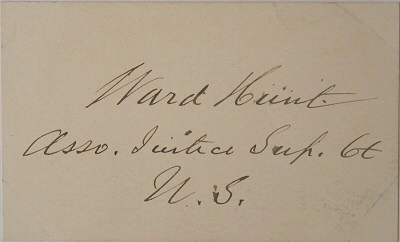 Ward Hunt.
Asso. Justice Sup. Ct
U. S.